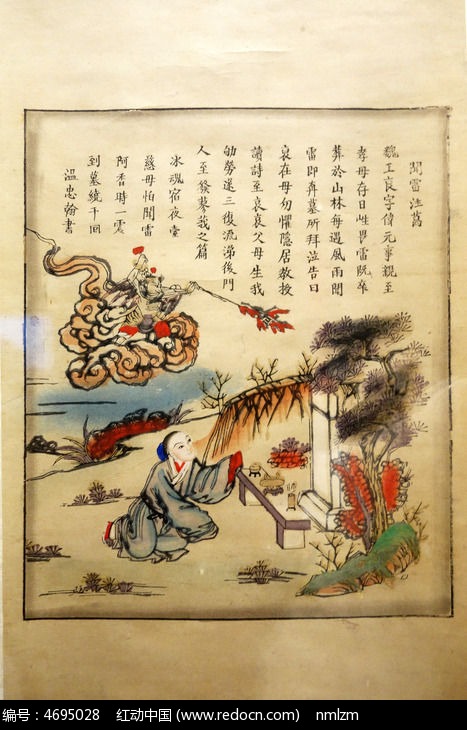 聞雷泣墓
魏王裒字偉元事親至
孝母存日性畏雷既卒
葬於山林每遇風雨聞
雷即奔墓所拜泣告曰
裒在母勿懼隱居教授
讀詩至哀哀父母生我
劬勞遂三復流涕後門
人至廢蓼莪之篇
冰魂宿夜臺
慈母怕聞雷
阿香時一震
到墓繞千回
溫忠翰書
编号：4695028 红动中国 (www.redocn.com) nmlzm